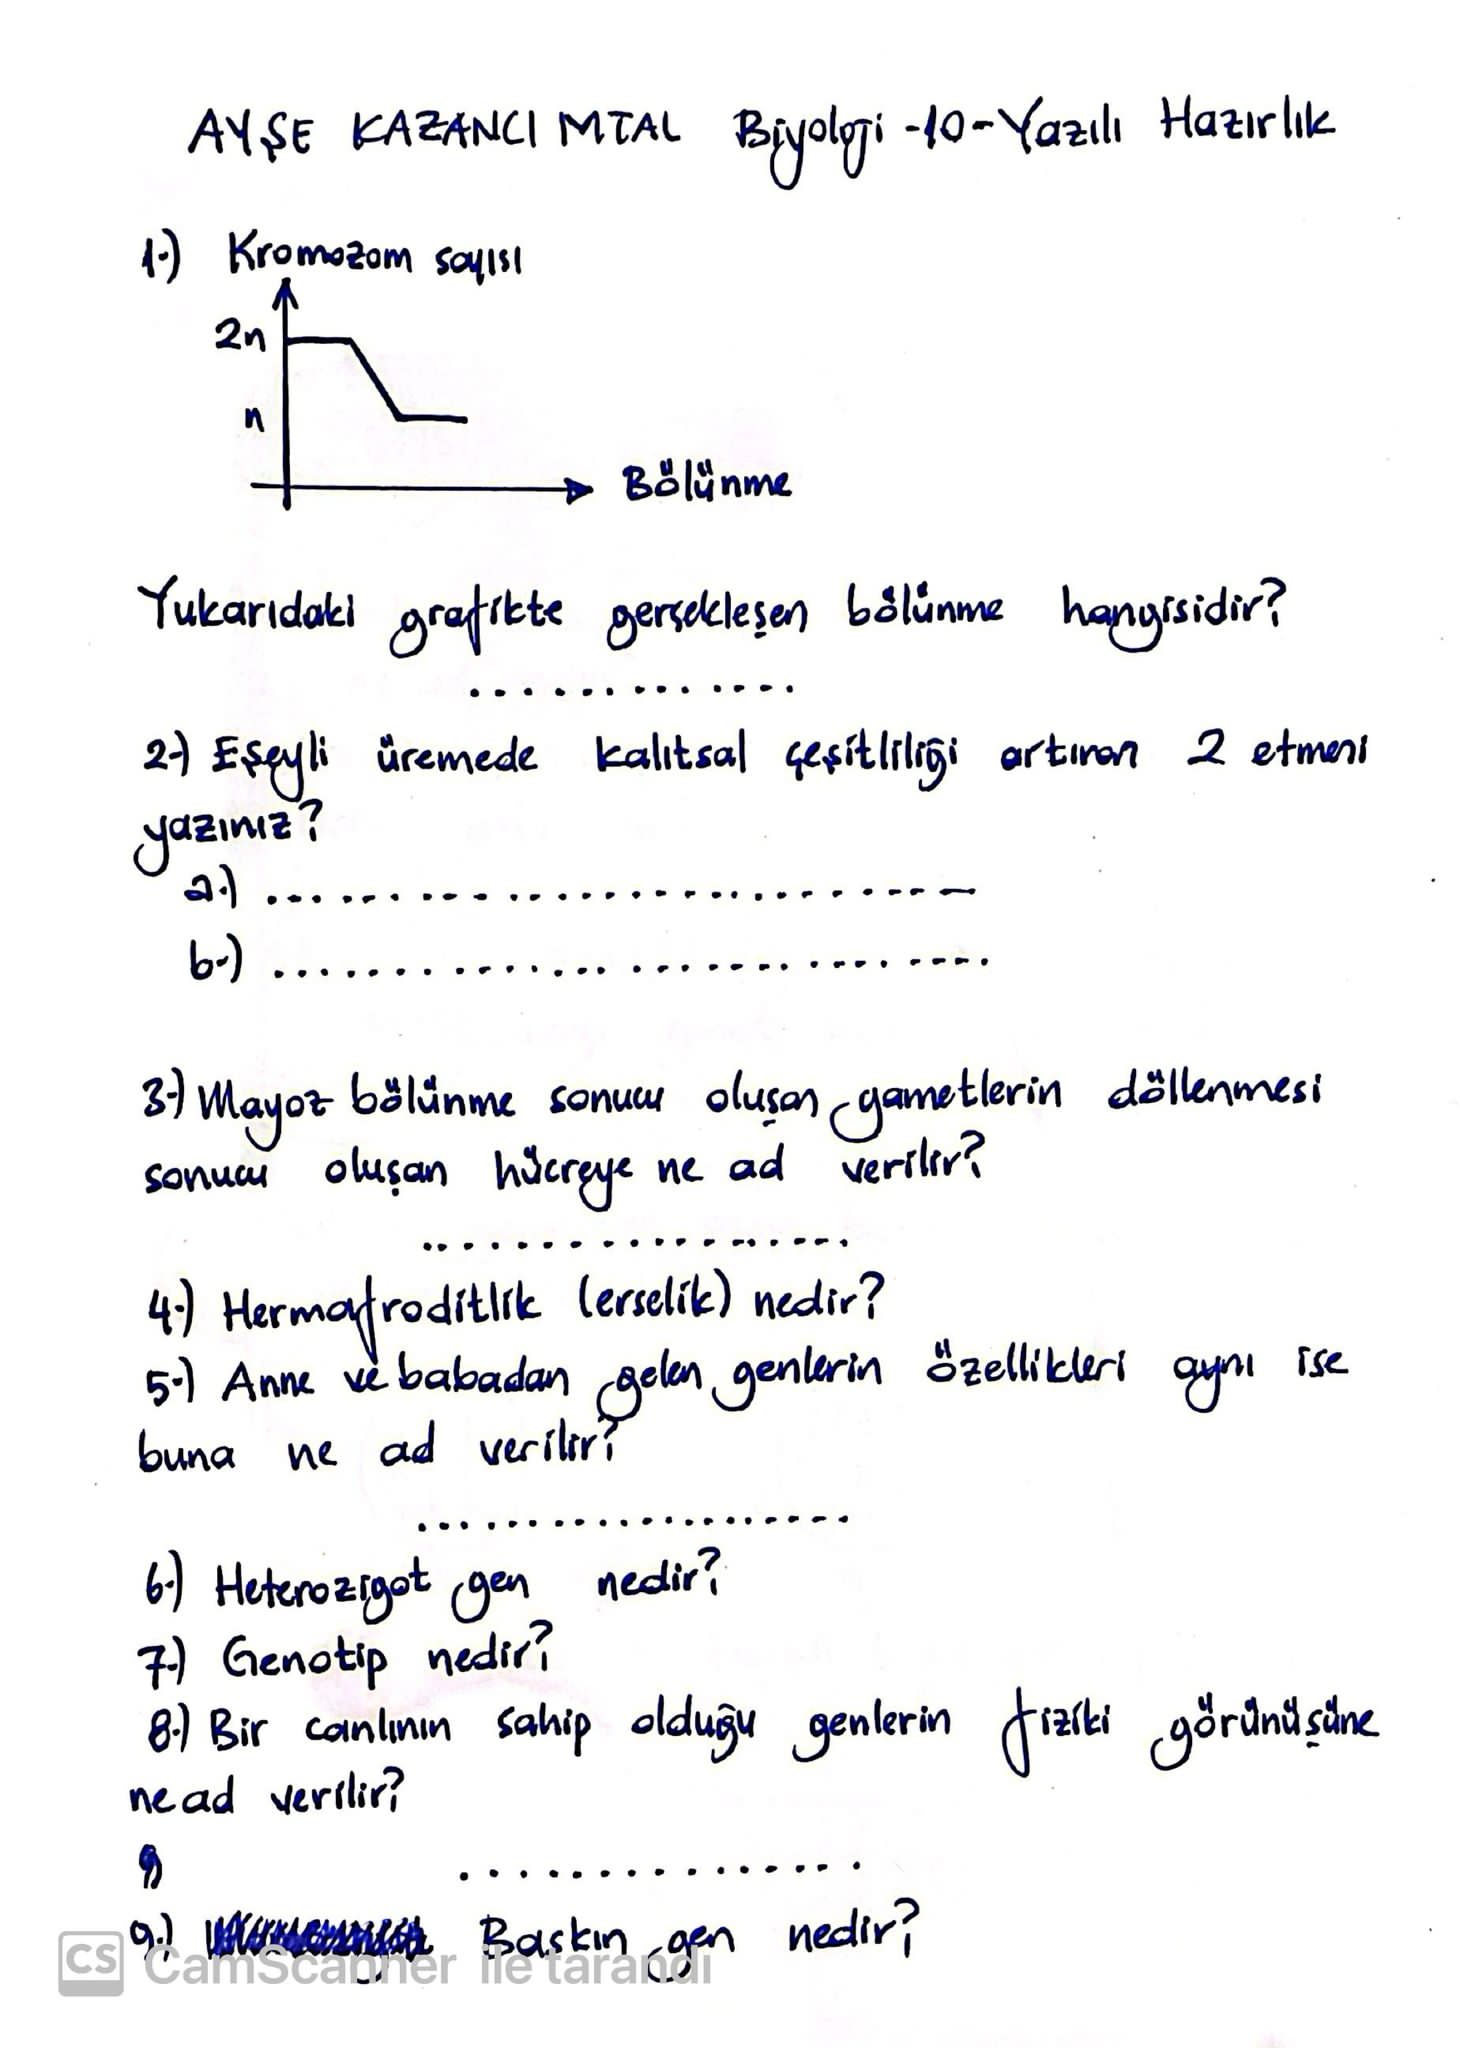 AYŞE KAZANCI MTAL Biyoloji -10- Yazılı Hazırlık
1-) Kromozom sayısı
2n
n
Bölünme
Yukarıdaki grafikte gerçekleşen bölünme hangisidir?
..............
2-) Eşeyli üremede kalıtsal çeşitliliği artıran 2 etmeni
yazınız?
a-) ..............................
b-) ..............................
3-) Mayoz bölünme sonucu oluşan gametlerin döllenmesi
sonucu oluşan hücreye ne ad verilir?
..................
4-) Hermafroditlik (erselik) nedir?
5-) Anne ve babadan gelen genlerin özellikleri aynı ise
buna ne ad verilir?
....................
6-) Heterozigot gen nedir?
7-) Genotip nedir?
8-) Bir canlının sahip olduğu genlerin fiziki görünüşüne
ne ad verilir?
................
9-) Baskın gen nedir?
CS CamScanner ile tarandı